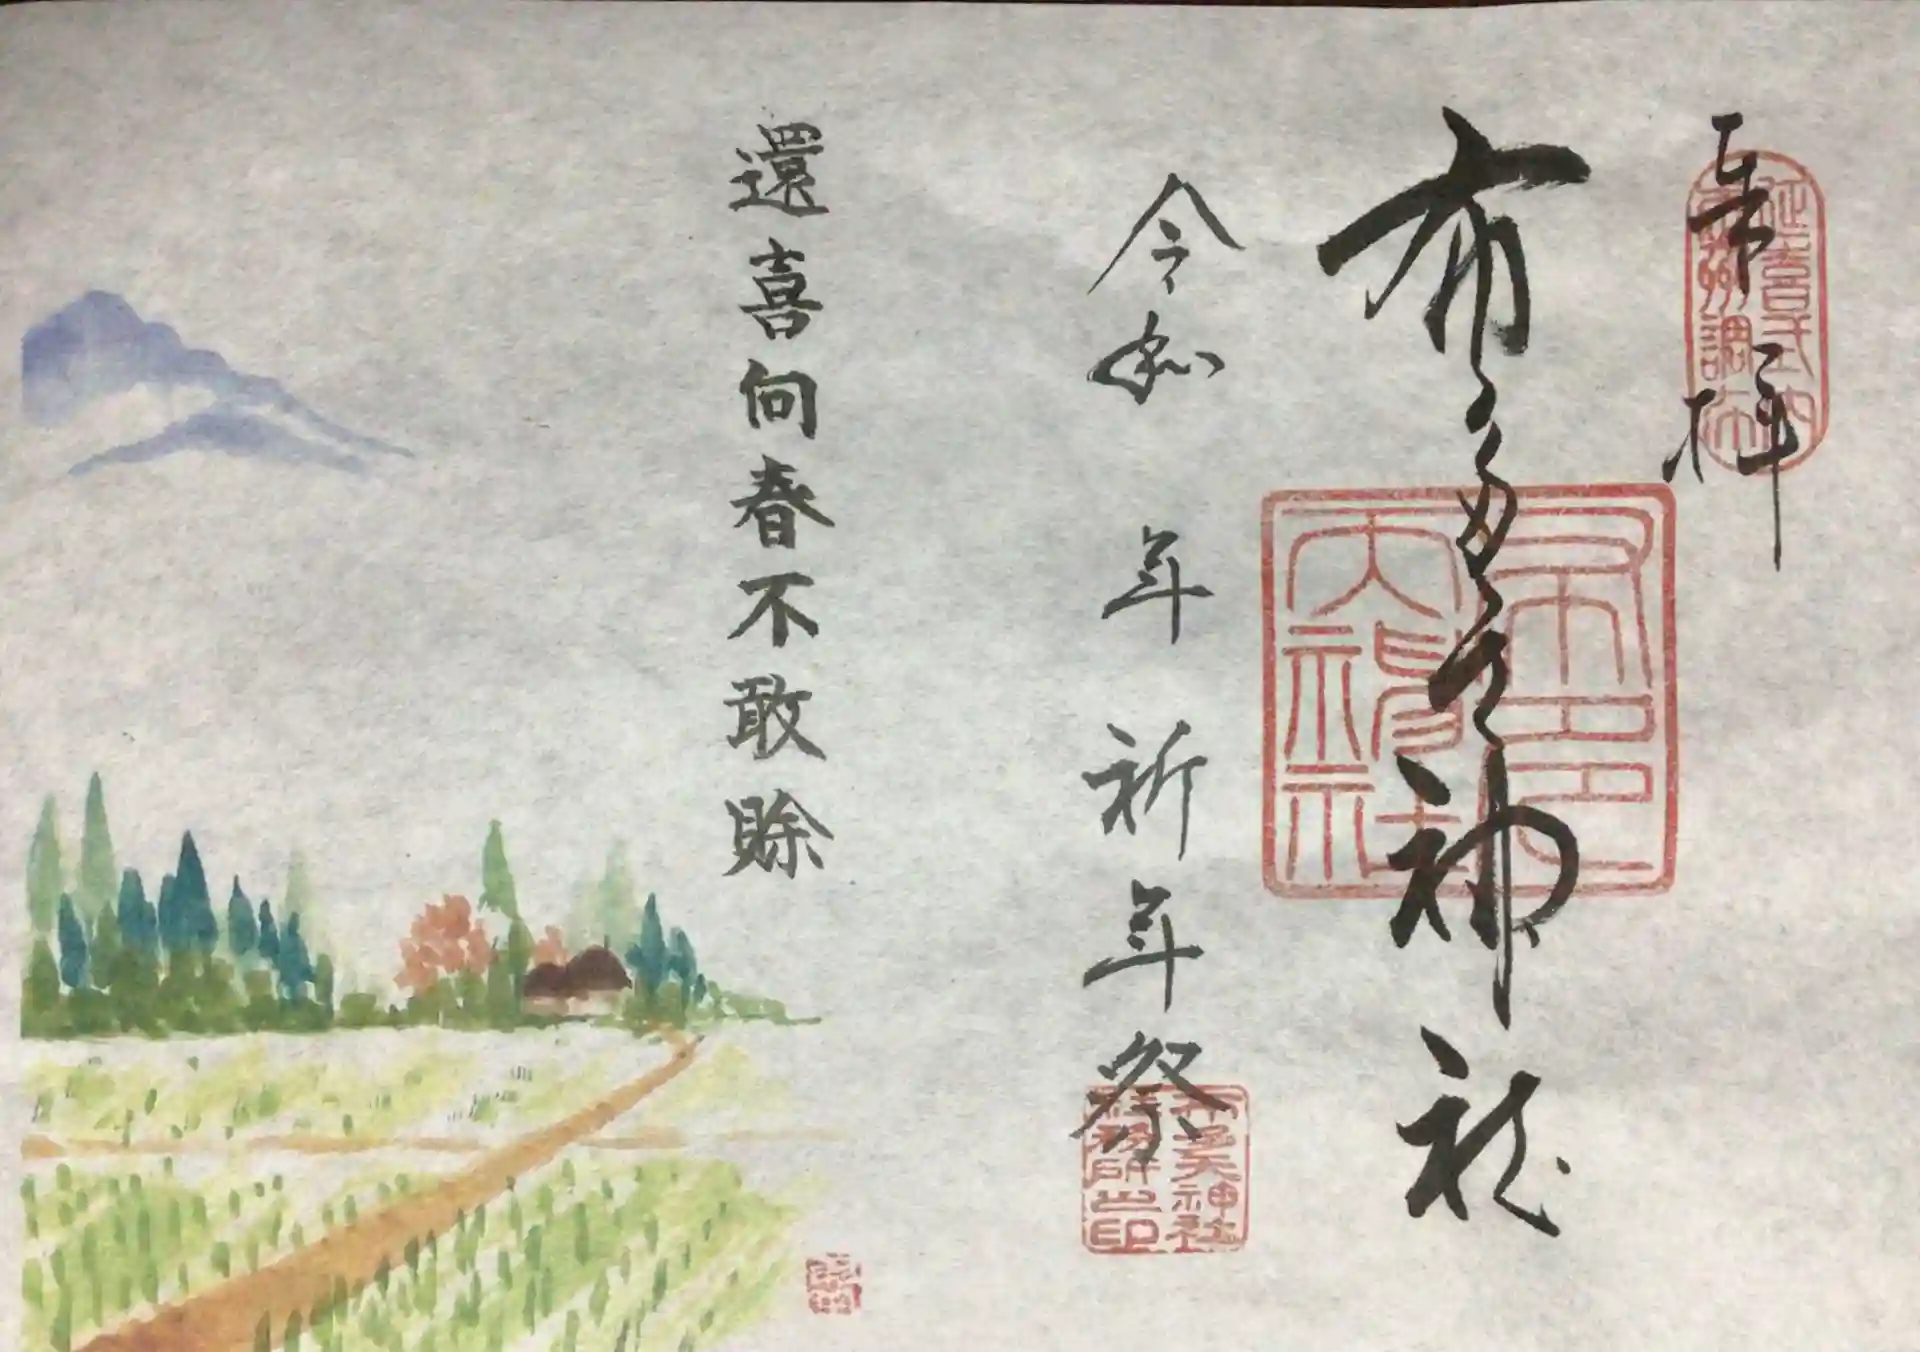 奉拝
延喜式内
武州調布
布多天神社
布多天神社
令和 年 祈年祭
布多天神社
社務所之印
還喜向春不敢賖